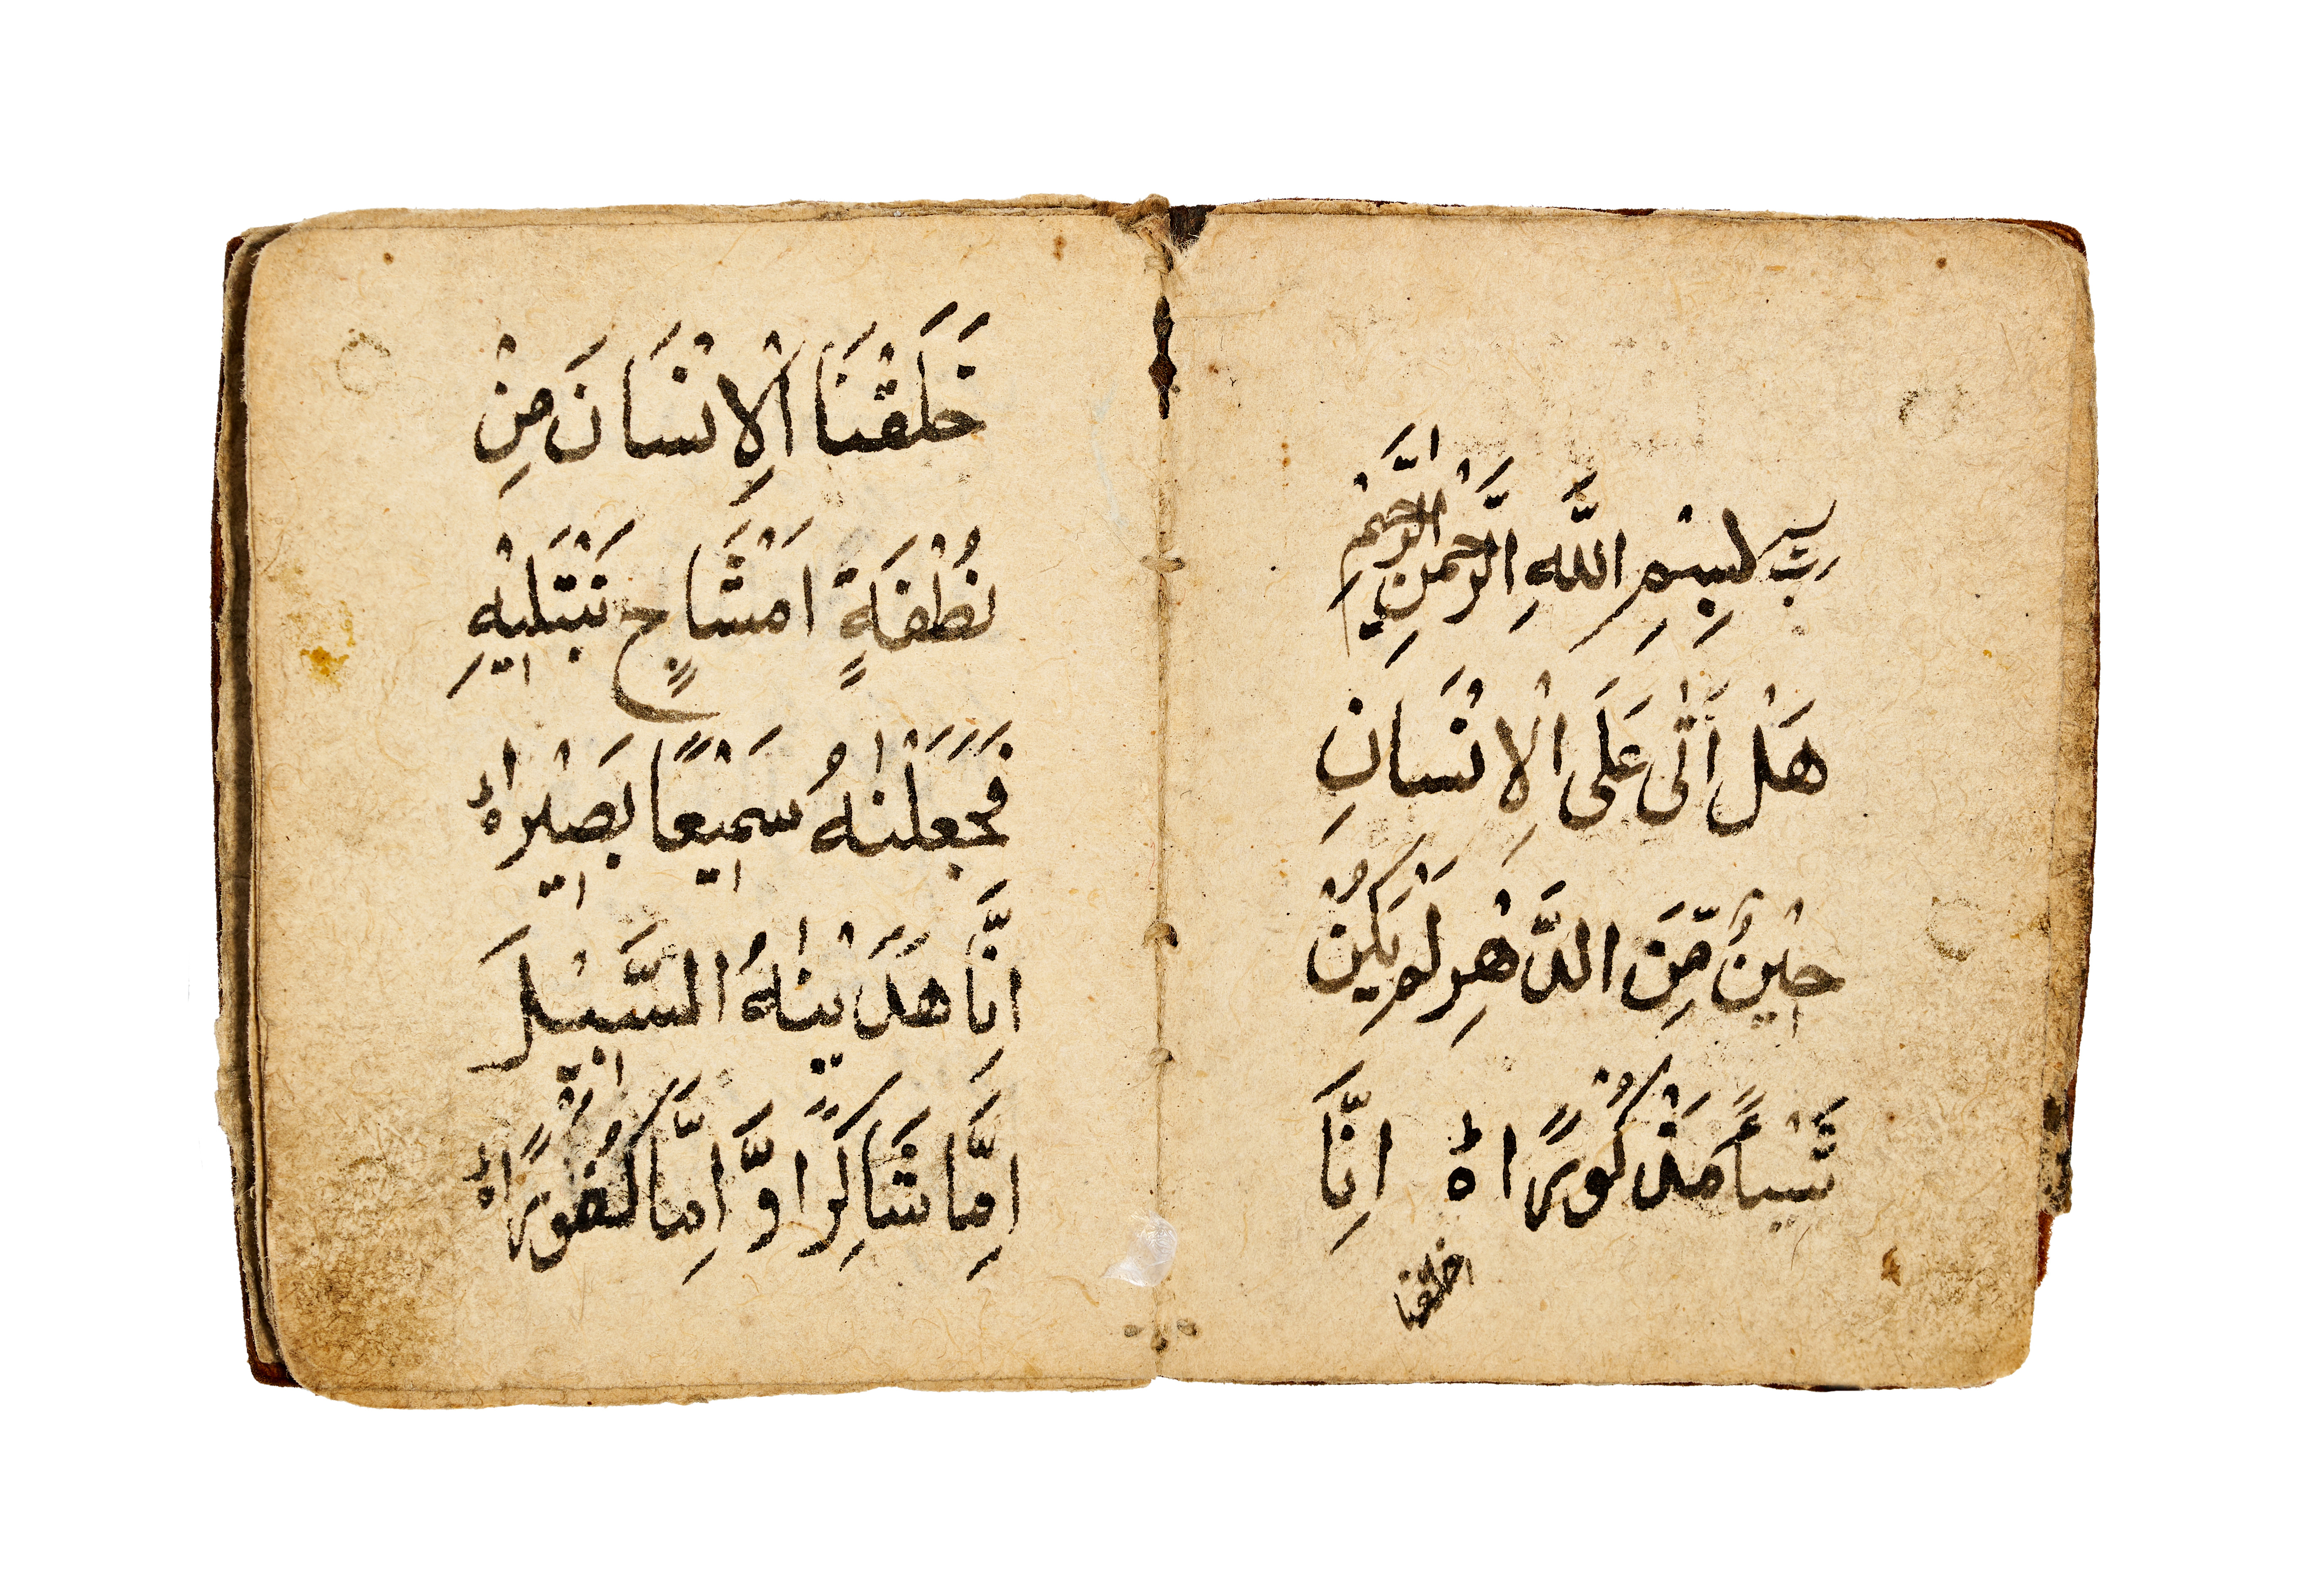 بِسْمِ اللَّهِ الرَّحْمٰنِ الرَّحِيْمِ
هَلْ اَتٰى عَلَى الْاِنْسَانِ
حِيْنٌ مِّنَ الدَّهْرِ لَمْ يَكُنْ
شَيْـًٔا مَذْكُوْرًا ۝ اِنَّا
خلقنا
خَلَقْنَا الْاِنْسَانَ مِنْ
نُطْفَةٍ اَمْشَاجٍ نَبْتَلِيْهِ
فَجَعَلْنٰهُ سَمِيْعًا بَصِيْرًا ۝
اِنَّا هَدَيْنٰهُ السَّبِيْلَ
اِمَّا شَاكِرًا وَّاِمَّا كَفُوْرًا ۝